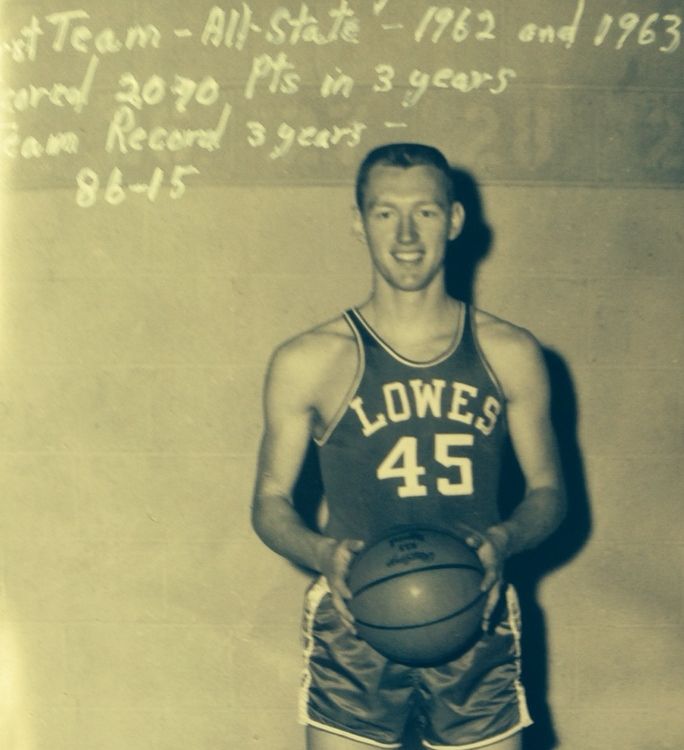 st Team - All-State - 1962 and 1963
cored 2070 Pts in 3 years
eam Record 3 years -
86-15
LOWES
45